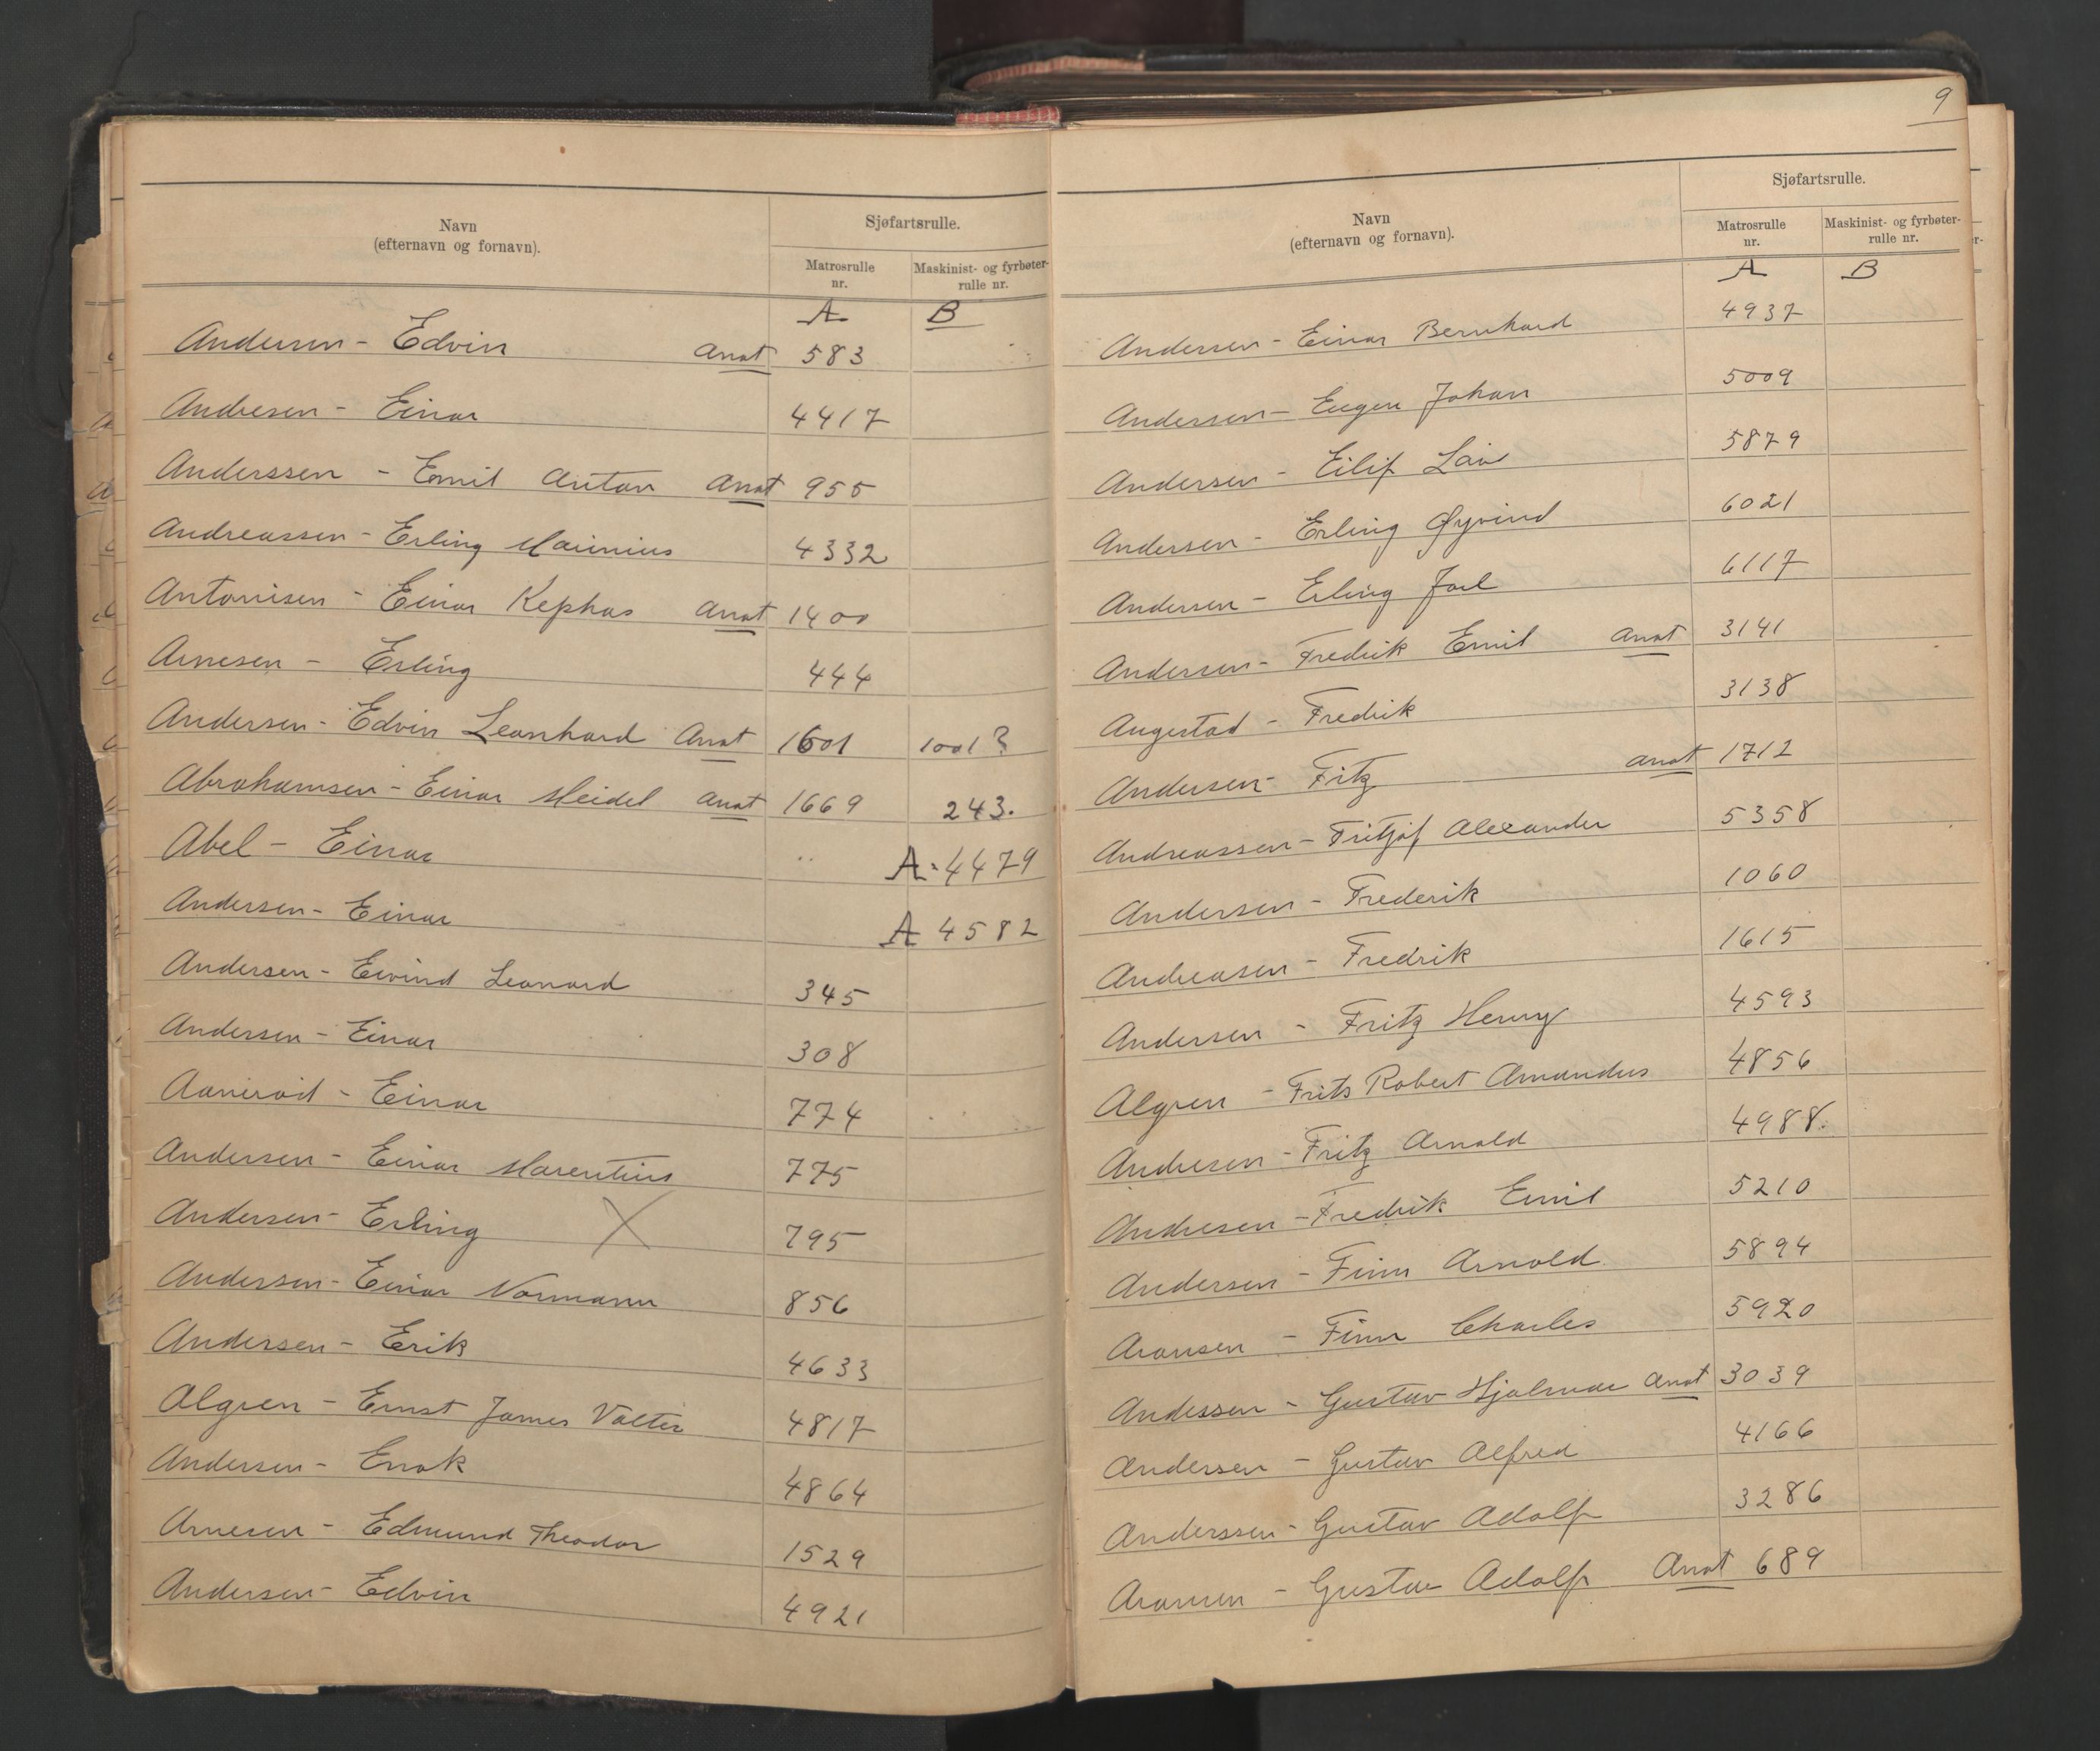 Navn
(efternavn og fornavn).
Sjøfartsrulle.
Matrosrulle
nr.
Maskinist- og fyrbøter-
rulle nr.
A B
Andersen - Edvin Anat 583
Andresen - Einar 4417
Anderssen - Emil Anton Anat 955
Andreassen - Erling Marinius 4332
Antonisen - Einar Kephas Anat 1400
Arnesen - Erling 444
Andersen - Edvin Leonhard Anat 1601 1001?
Abrahamsen - Einar Meidel Anat 1669 243.
Abel - Einar A. 4479
Andersen - Einar A 4582
Andersen - Eivind Leonard 345
Andersen - Einar 308
Aanerød - Einar 774
Andersen - Einar Marentius 775
Andersen - Erling X 795
Andersen - Einar Normann 856
Andersen - Erik 4633
Algren - Ernst James Valter 4817
Andersen - Enok 4864
Arnesen - Edmund Theodor 1529
Andersen - Edvin 4921
9
Navn
(efternavn og fornavn).
Sjøfartsrulle.
Matrosrulle
nr.
Maskinist- og fyrbøter-
rulle nr.
A B
Andersen - Einar Bernhard 4937
Andersen - Eugen Johan 5009
Andersen - Eilif 5879
Andersen - Erling Øyvind 6021
Andersen - Erling Joel 6117
Andersen - Fredrik Emil Anat 3141
Augestad - Fredrik 3138
Andersen - Fitz Anat 1712
Andreassen - Fritjof Alexander 5358
Andersen - Frederik 1060
Andreasen - Fredrik 1615
Andersen - Fritz Henry 4593
Algren - Frits Robert Amandus 4856
Andresen - Fritz Arnold 4988.
Andresen - Fredrik Emil 5210
Andersen - Finn Arnold 5894
Aronsen - Finn Charles 5920
Anderssen - Gustav Hjalmar Anat 3039
Anderssen - Gustav Alfred 4166
Anderssen - Gustav Adolf 3286
Aronsen - Gustav Adolf Anat 689